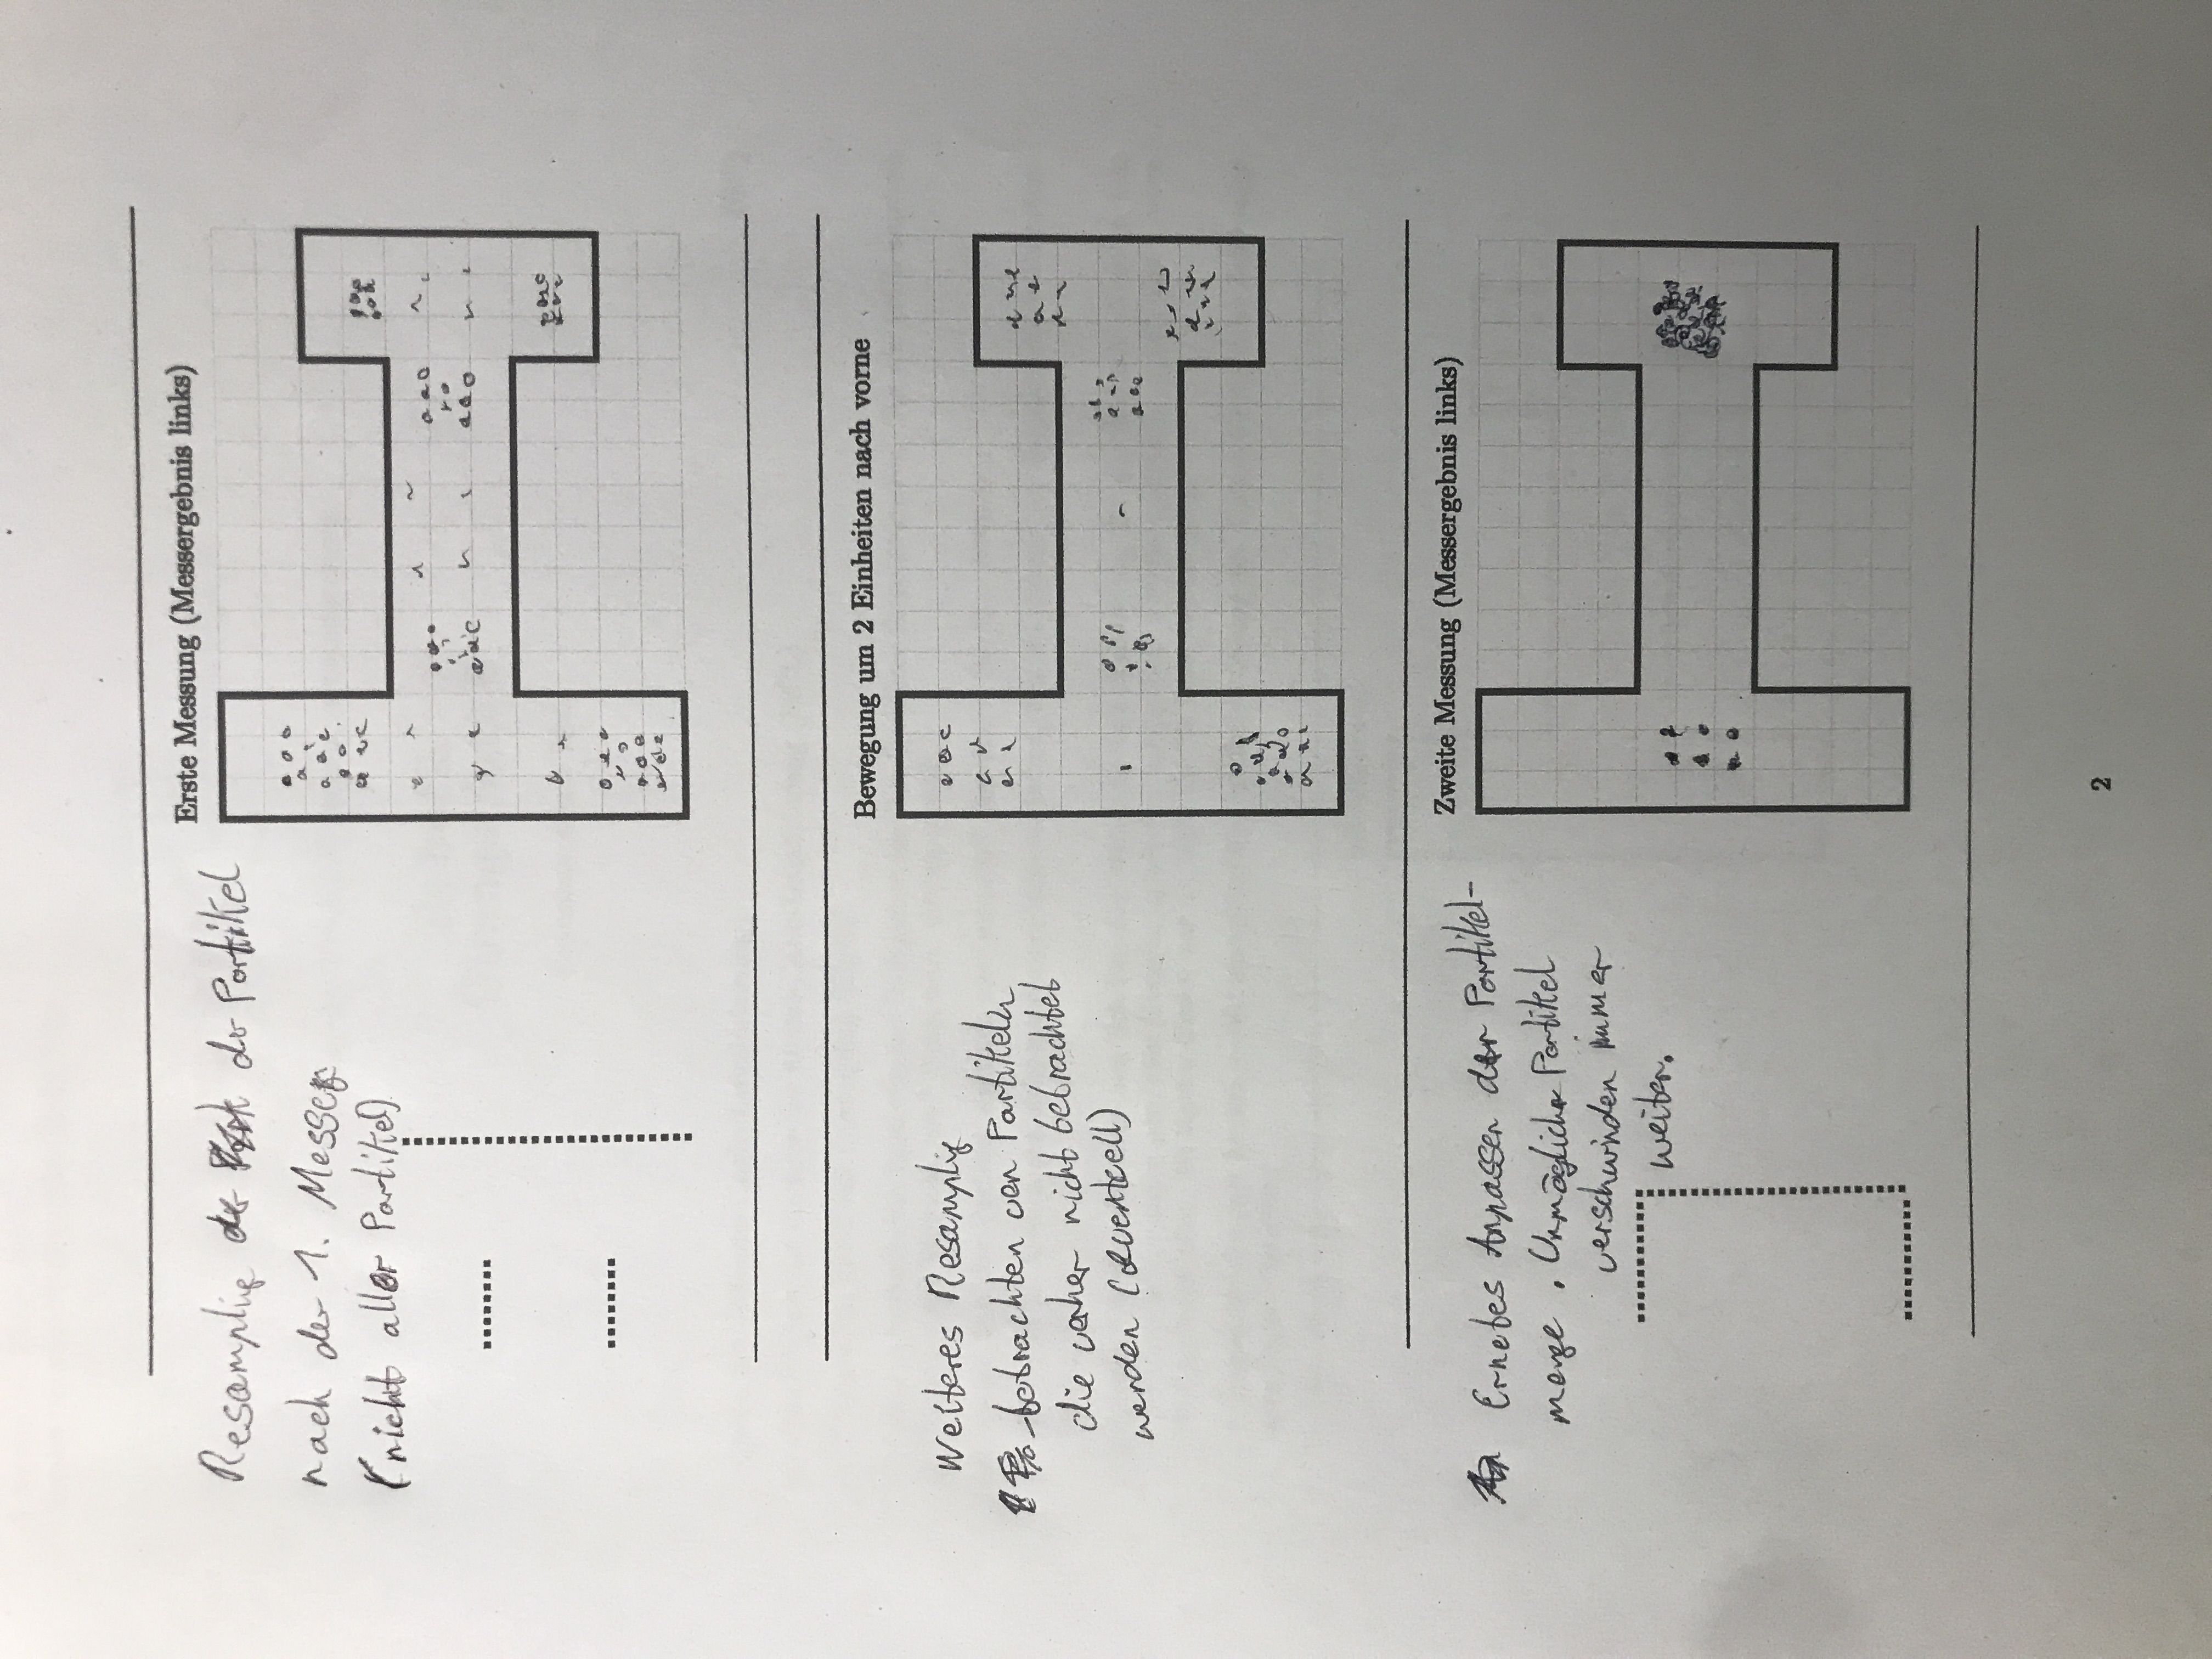 Erste Messung (Messergebnis links)
Resampling der der Partikel
nach der 1. Messung
(nicht aller Partikel)
Bewegung um 2 Einheiten nach vorne
Weiteres Resampling
-betrachten von Partikeln
die vorher nicht betrachtet
werden (eventuell)
Zweite Messung (Messergebnis links)
Ernetes Anpassen der Partikel-
menge. Unmögliche Partikel
verschwinden immer
weiter.
2